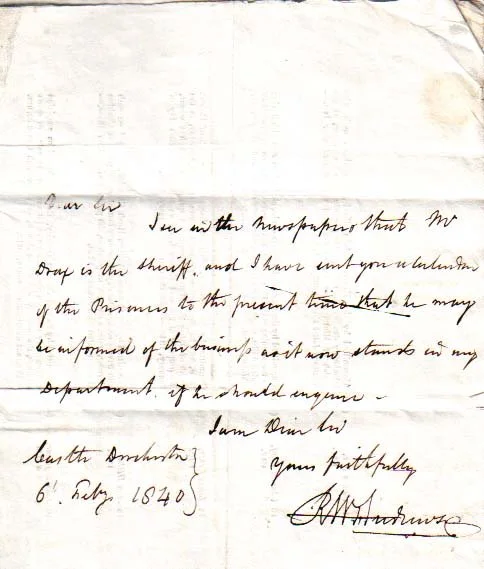 Dear Sir
I see in the Newspapers that Mr
Drax is the Sheriff, and I have sent you a Calendar
of the Prisoners to the present time that he may
be informed of the business as it now stands in my
Department, if he should enquire –
I am Dear Sir
Yours faithfully
Castle Dorchester
6 Feby 1840
R W Andrews